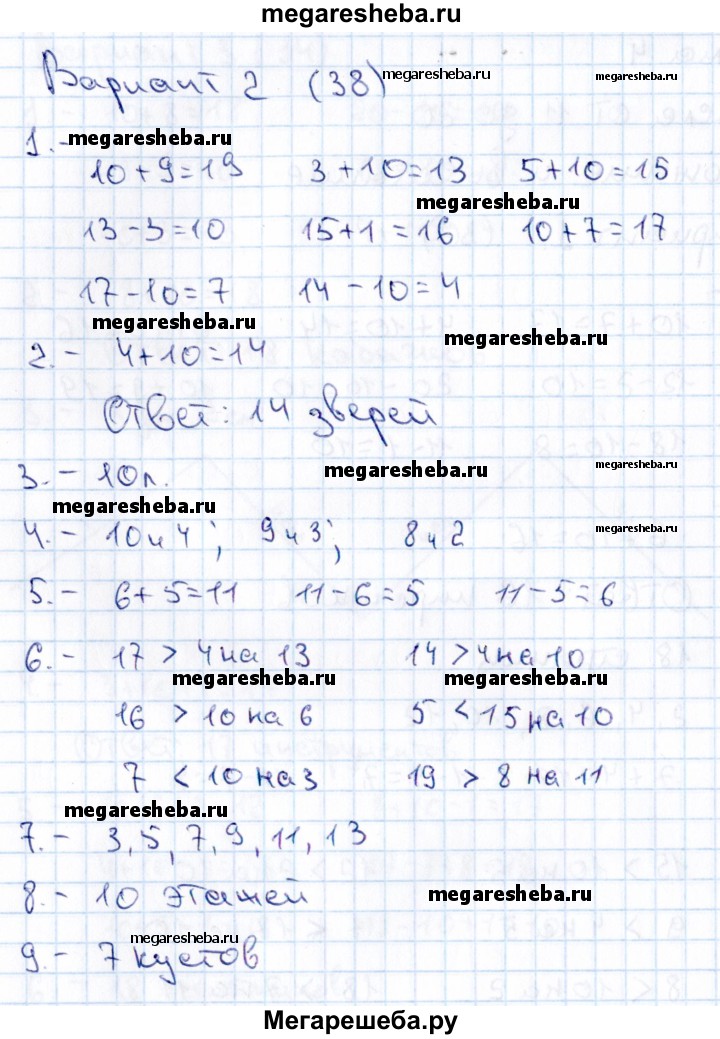 megaresheba.ru
Вариант 2 (38)
megaresheba.ru megaresheba.ru
1.-
megaresheba.ru
10+9=19 3+10=13 5+10=15
megaresheba.ru
13-3=10 15+1=16 10+7=17
17-10=7 14-10=4
megaresheba.ru megaresheba.ru
2.- 4+10=14
Ответ: 14 зверей
3.- 10л. megaresheba.ru megaresheba.ru
megaresheba.ru
4.- 10 и 4; 9 и 3; 8 и 2 megaresheba.ru
5.- 6+5=11 11-6=5 11-5=6
6.- 17 > 4 на 13 14 > 4 на 10
megaresheba.ru megaresheba.ru
16 > 10 на 6 5 < 15 на 10
7 < 10 на 3 19 > 8 на 11
megaresheba.ru
7.- 3, 5, 7, 9, 11, 13
8.- 10 этажей megaresheba.ru
megaresheba.ru
9.- 7 кустов
Мегарешеба.ру